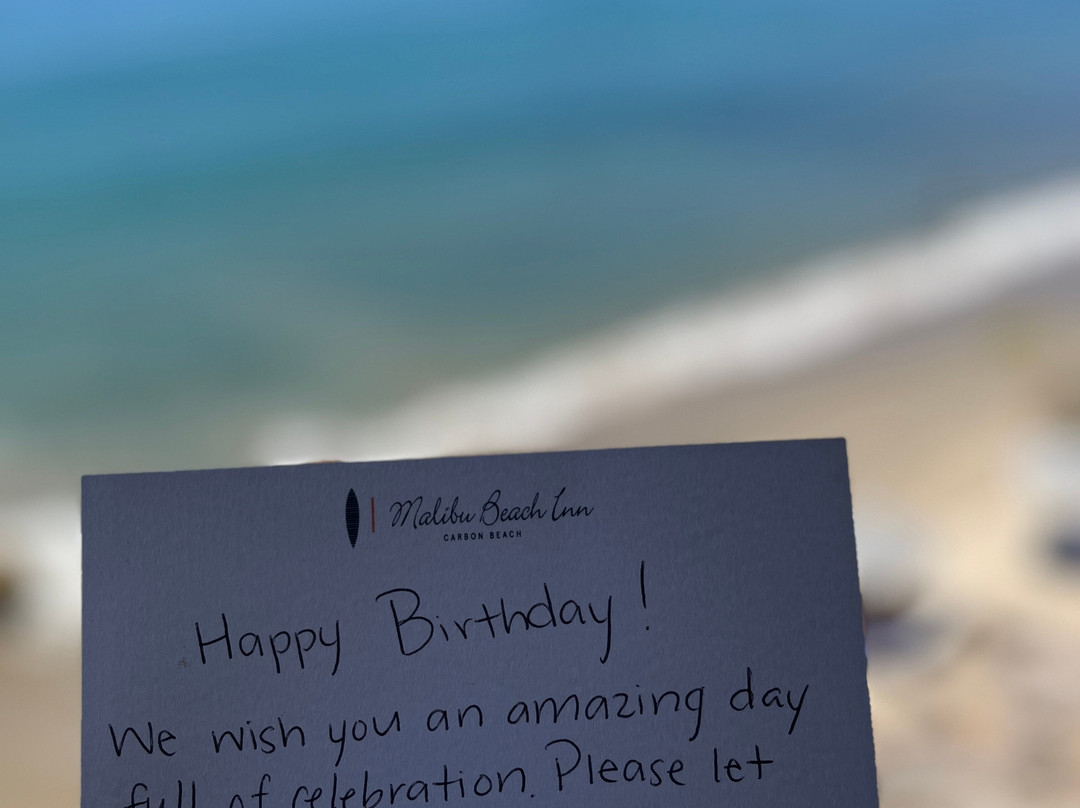 Malibu Beach Inn
CARBON BEACH
Happy Birthday!
We wish you an amazing day
full of celebration. Please let